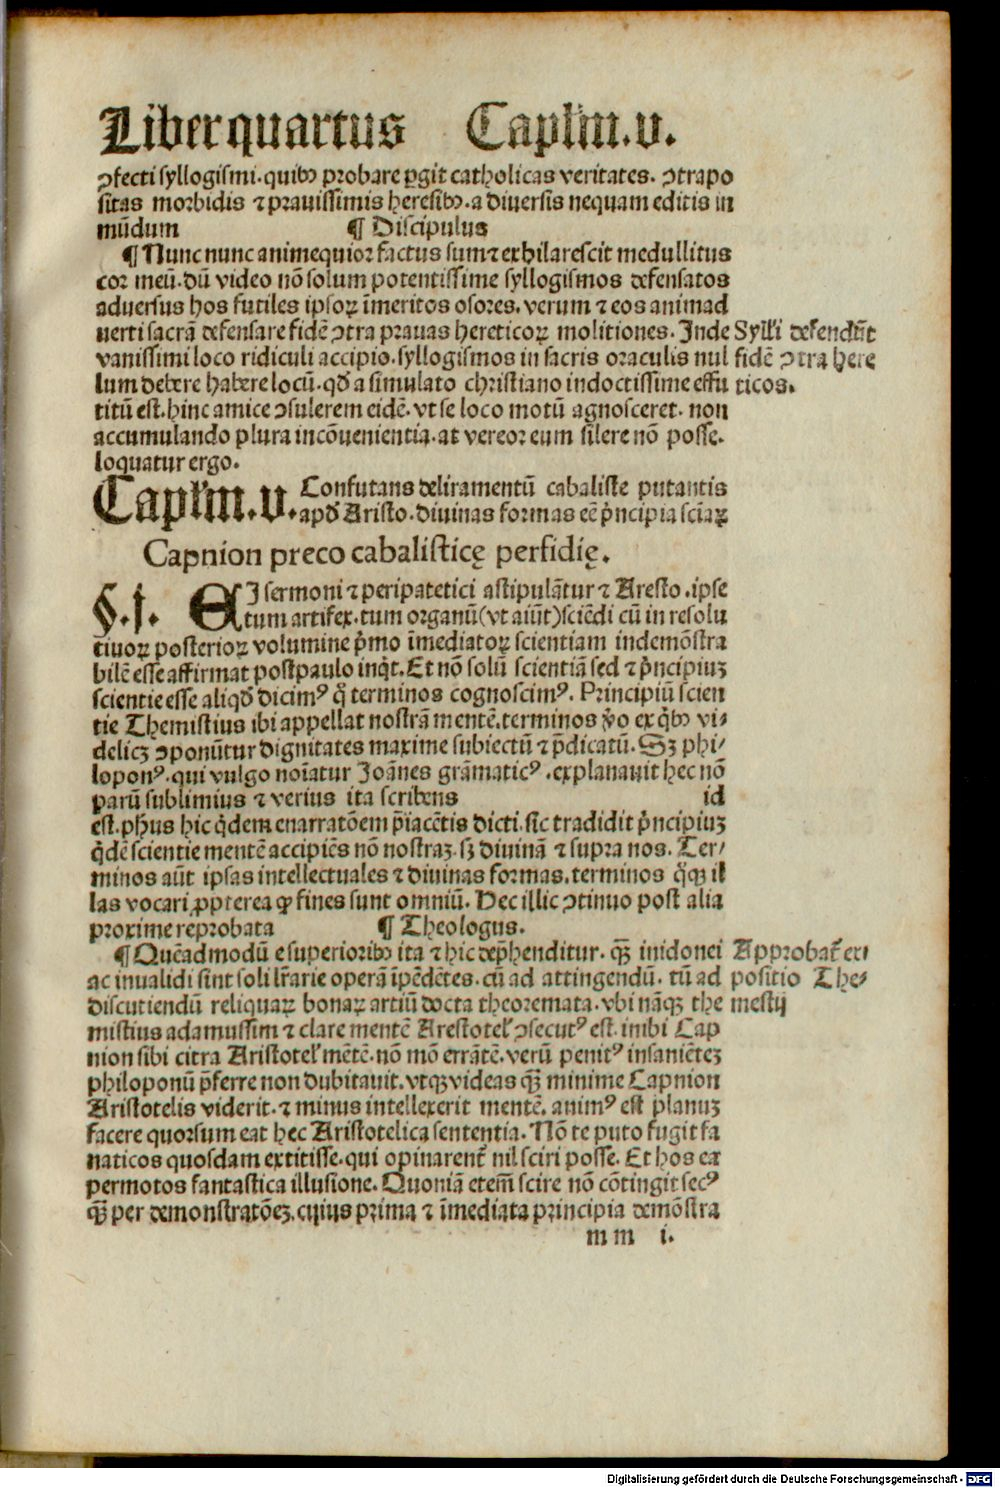 Liber quartus Caplꝫm.v.
ꝯfecti syllogismi.quibꝰ probare ꝑgit catholicas veritates. ꝯtrapo
sitas morbidis ⁊ prauissimis heresibꝰ.a diuersis nequam editis in
mūdum ¶ Discipulus
¶ Nunc nunc animequior factus sum⁊exhilarescit medullitus
cor meū.dū video nō solum potentissime syllogismos defensatos
aduersus hos futiles ipsoꝝ īmeritos osores.verum ⁊ eos animad
uerti sacrā defensare fidē ꝯtra prauas hereticoꝝ molitiones. Inde
vanissimi loco ridiculi accipio.syllogismos in sacris oraculis nul
lum debere habere locū.qđ a simulato christiano indoctissime effu
titū est.hinc amice ꝯsulerem eidē.vt se loco motū agnosceret. non
accumulando plura incōuenientia.at vereor eum silere nō posse.
loquatur ergo.
Sylli defendūt
fidē ꝯtra here
ticos.
Caplꝫm.v. Confutans deliramentū cabaliste putantis
apđ Aristo.diuinas formas eē pͥncipia sciaꝝ
Capnion preco cabalisticę perfidię.
§.j. EI sermoni ⁊ peripatetici astipulātur ⁊ Aresto.ipse
tum artifex.tum organū(vt aiūt)sciēdi cū in resolu
tiuoꝝ posterioꝝ volumine pͥmo īmediatoꝝ scientiam indemōstra
bilē esse affirmat postpaulo inqͥt. Et nō solū scientiā sed ⁊ pͥncipiuꝫ
scientie esse aliqđ dicimꝰ qͣ terminos cognoscimꝰ. Principiū scien
tie Themistius ibi appellat nostrā mentē.terminos ṽo ex qͥbꝰ vi⸗
delicꝫ ꝯponūtur dignitates maxime subiectū ⁊ p̄dicatū. Sꝫ phi⸗
loponꝰ.qui vulgo noīatur Joānes grāmaticꝰ.explanauit hec nō
parū sublimius ⁊ verius ita scribens id
est.ph̄us hic qͥdem enarratōem p̄iacētis dicti.sic tradidit pͥncipiuꝫ
qͥdē scientie mentē accipiēs nō nostraꝫ.sꝫ diuinā ⁊ supra nos. Ter⸗
minos aūt ipsas intellectuales ⁊ diuinas formas.terminos qͥqꝫ il
las vocari ꝓpterea ꝙ fines sunt omniū. Hec illic ꝯtinuo post alia
proxime reprobata ¶ Theologus.
¶ Quēadmodū e superioribꝰ ita ⁊ hic dep̄henditur. qꝫ̄ inidonei
ac inualidi sint soli lr̄arie operā īpēdētes.cū ad attingendū. tū ad
discutiendū reliquaꝝ bonaꝝ artiū docta theoremata.vbi nāqꝫ the
mistius adamussim ⁊ clare mentē Arestotelꝭ ꝯsecutꝰ est.inibi Cap
nion sibi citra Aristotelꝭ mētē.nō mō errātē.verū penitꝰ insaniēteꝫ
philoponū p̄ferre non dubitauit.vtqꝫ videas qꝫ̄ minime Capnion
Aristotelis viderit.⁊ minus intellexerit mentē.animꝰ est planuꝫ
facere quorsum eat hec Aristotelica sententia. Nō te puto fugit fa
naticos quosdam extitisse.qui opinarent᷑ nil sciri posse. Et hos ex
permotos fantastica illusione. Quoniā etem̄ scire nō cōtingit secꝰ
qꝫ̄ per demonstratōeꝫ.cuius prima ⁊ īmediata principia demōstra
Approbat᷑ ex⸗
positio The⸗
mestij
m m i.
Digitalisierung gefördert durch die Deutsche Forschungsgemeinschaft - DFG